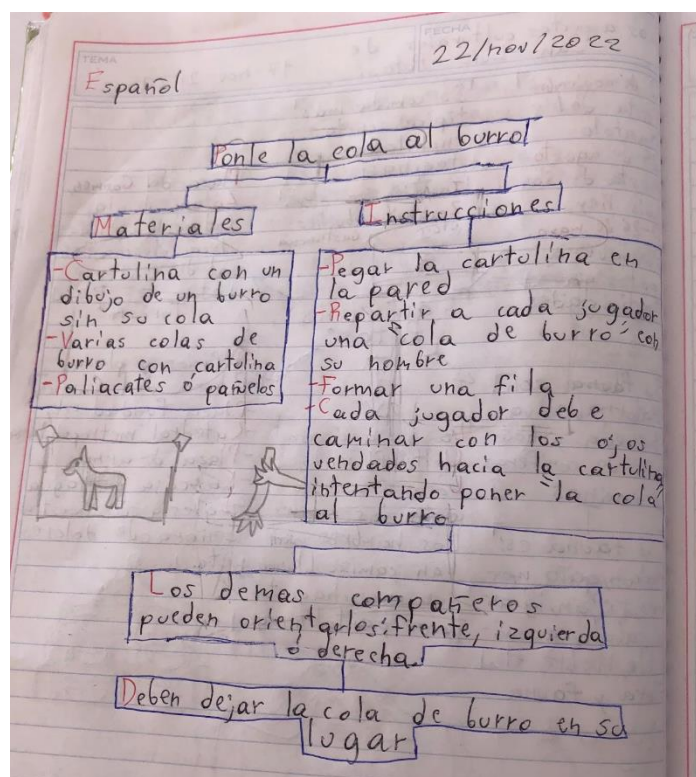 TEMA
FECHA
22/nov/2022
Español
Ponle la cola al burro
Materiales
-Cartulina con un
dibujo de un burro
sin su cola
-Varias colas de
burro con cartulina
-Paliacates ó pañuelos
Instrucciones
-Pegar la cartulina en
la pared
-Repartir a cada jugador
una "cola de burro" con
su nombre
-Formar una fila
-Cada jugador debe
caminar con los ojos
vendados hacia la cartulina
intentando poner "la cola"
al burro
Los demas compañeros
pueden orientarlos: frente, izquierda
ó derecha.
Deben dejar la cola de burro en su
lugar